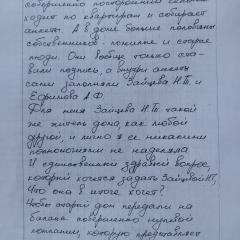 совершенно посторонний человек
ходит по квартирам и собирает
анкеты. А в доме больше половины
собственников - пожилые и старые
люди. Они вообще только ста-
вили подпись, а внутри анкеты
сами заполняли Зайцева Н.П. и
Ефимова А.Ф.
Для меня Зайцева Н.П. такой
же житель дома, как любой
другой, и лично я ее никакими
полномочиями не наделяла
И единственный здравый вопрос,
который хочется задать Зайцевой Н.П,
Что она в итоге хочет?
Чтобы старый дом передали на
баланс совершенно нулевой
компании, которую представляет